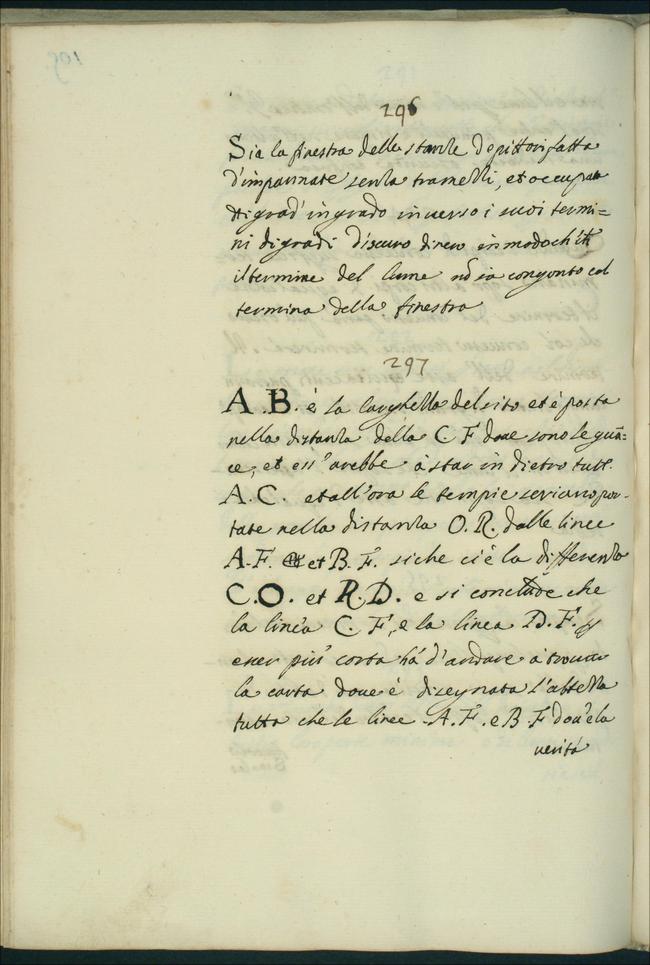 296
Sia la finestra delle stanze de pittori fatta
d'impannate senza tramezzi, et occupata
di grad' in grado inverso i suoi termi=
ni di gradi d'iscuro di nero in modo ch'il
il termine del lume nō sia congionto col
termina della finestra
297
A.B. è la larghezza del sito et è posta
nella distanza della C F doue sono le guā=
ce, et ess' arebbe à star in dietro tutt.
A.C. et all'ora le tempie seriano por-
tate nella distanza O.R. dalle linee
A.F. et B.F. siche ci è la differenza
C.O. et R.D. e si conclude che
la linea C.F, e la linea D.F. p
esser più corta hà d'andare à trouar
la carta doue è disegnata l'altezza
tutta che le linee A.F. e B.F dou'è la
verità